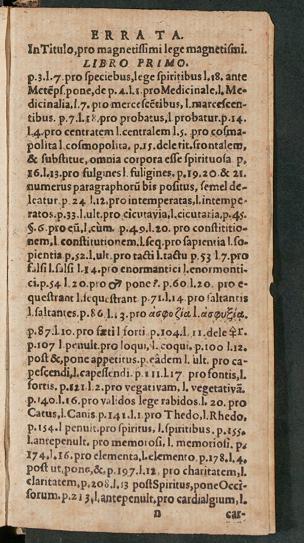 ERRATA.
In Titulo, pro magnetissimi lege magnetismi.
LIBRO PRIMO.
p.3.l.7. pro speciebus, lege spiritibus l.18. ante
Metēps. pone, de p.4.l.1. pro Medicinale, l, Me-
dicinalia, l.7. pro mercescētibus, l. marcescen-
tibus. p.7.l.18. pro probatus, l probatur. p.14.
l.4. pro centratem l. centralem l.5. pro cosma-
polita l. cosmopolita, p.15. dele tit. frontalem,
& substitue, omnia corpora esse spirituosa p,
16.l.13. pro fulgines l. fuligines, p.19.20 & 21.
numerus paragraphorū bis positus, semel de-
leatur. p. 24 l.12. pro intemperatas, l. intempe-
ratos. p.33.l. ult. pro cicutavia, l. cicutaria, p.45.
§.6. pro eū, l, cùm. p.49.l.20. pro constitio-
nem, l. constitutionem, l. seq. pro sapientia l. so-
pientia p.52.l. ult. pro tacti l. tactu p.53 l.7. pro
falsi l. salsi l.14. pro enormantici l. enormonti-
ci. p.54 l.20. pro ♂ pone ☿. p.60 l.20. pro e-
questrant l. sequestrant p.71.l.14 pro saltantis
l. saltantes. p.86 l.13. pro ἀσφοξία l. ἀσφυξία.
p.87.l.10. pro sæti l forti. p.104.l.11. dele
p.107 l penult. pro loqui, l. coqui. p.100 l.12.
post &, pone appetitus. p. eâdem l. ùlt. pro ca-
pescendi, l. capessendi. p.111.l.17 pro fontis, l.
fortis. p.121.l.2. pro vegativam, l. vegetativā.
p.140.l.16. pro validos lege rabidos. l.20. pro
Catus, l. Canis. p.141.l.1 pro Thedo, l. Rhedo,
p.154.l penult. pro spiritus, l. spiritibus, p.155.
l. antepenult. pro memoiosi, l. memoriosi, p.
174, l.16. pro elementa, l. elemento. p.178, l.4.
post ut, pone, &. p.197.l.12. pro charitatem, l.
claritatem, p.208.l.13 post Spiritus, pone Occi-
sorum. p.213, l. antepenult, pro cardialgium, l.
n car-